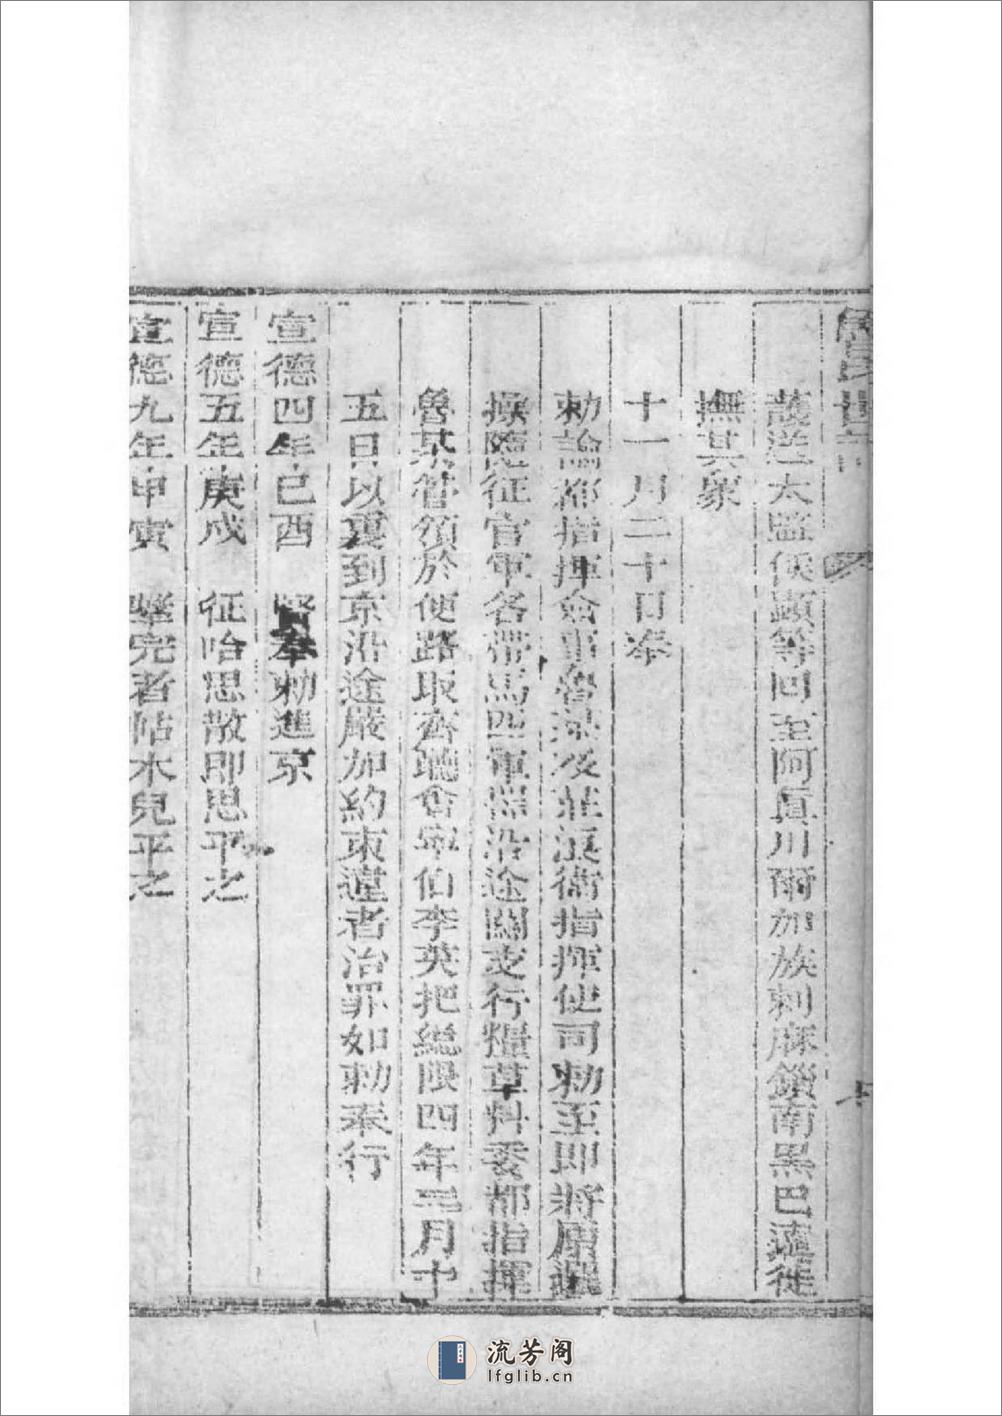 魯氏世譜
護送太監侯顯等回至阿眞川爾加族剌麻鎖南黑巴遠徙
撫其衆
十一月二十日奉
勅諭都指揮僉事魯某及莊浪衛指揮使司勅至即將原選
操隨征官軍各帶馬匹軍器沿途關支行糧草料委都指揮
魯某管領於便路取齊聽會寧伯李英把總限四年三月十
五日以裏到京沿途嚴加約束違者治罪如勅奉行
宣德四年己酉 賢奉勅進京
宣德五年庚戌 征哈思散即思平之
宣德九年申寅 擊完者帖木兒平之
流芳阁
lfglib.cn